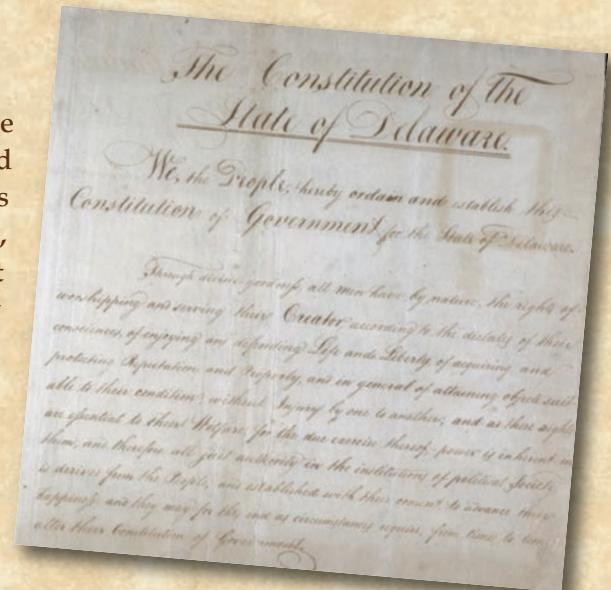 e
d
s
,
t
The Constitution of the
State of Delaware.
We, the People, hereby ordain and establish this
Constitution of Government for the State of Delaware.
Through divine goodness, all men have by nature, the rights of
worshipping and serving their Creator according to the dictates of their
consciences, of enjoying and defending Life and Liberty of acquiring and
protecting Reputation and Property, and in general of attaining objects suit
able to their condition, without Injury by one to another; and as these rights
are essential to their Welfare, for the due exercise thereof, power is inherent in
them; and therefore all just authority in the institutions of political Society
is derived from the People, and established with their consent to advance their
happiness: and they may for this end as circumstances require, from time to time
alter their Constitution of Government.